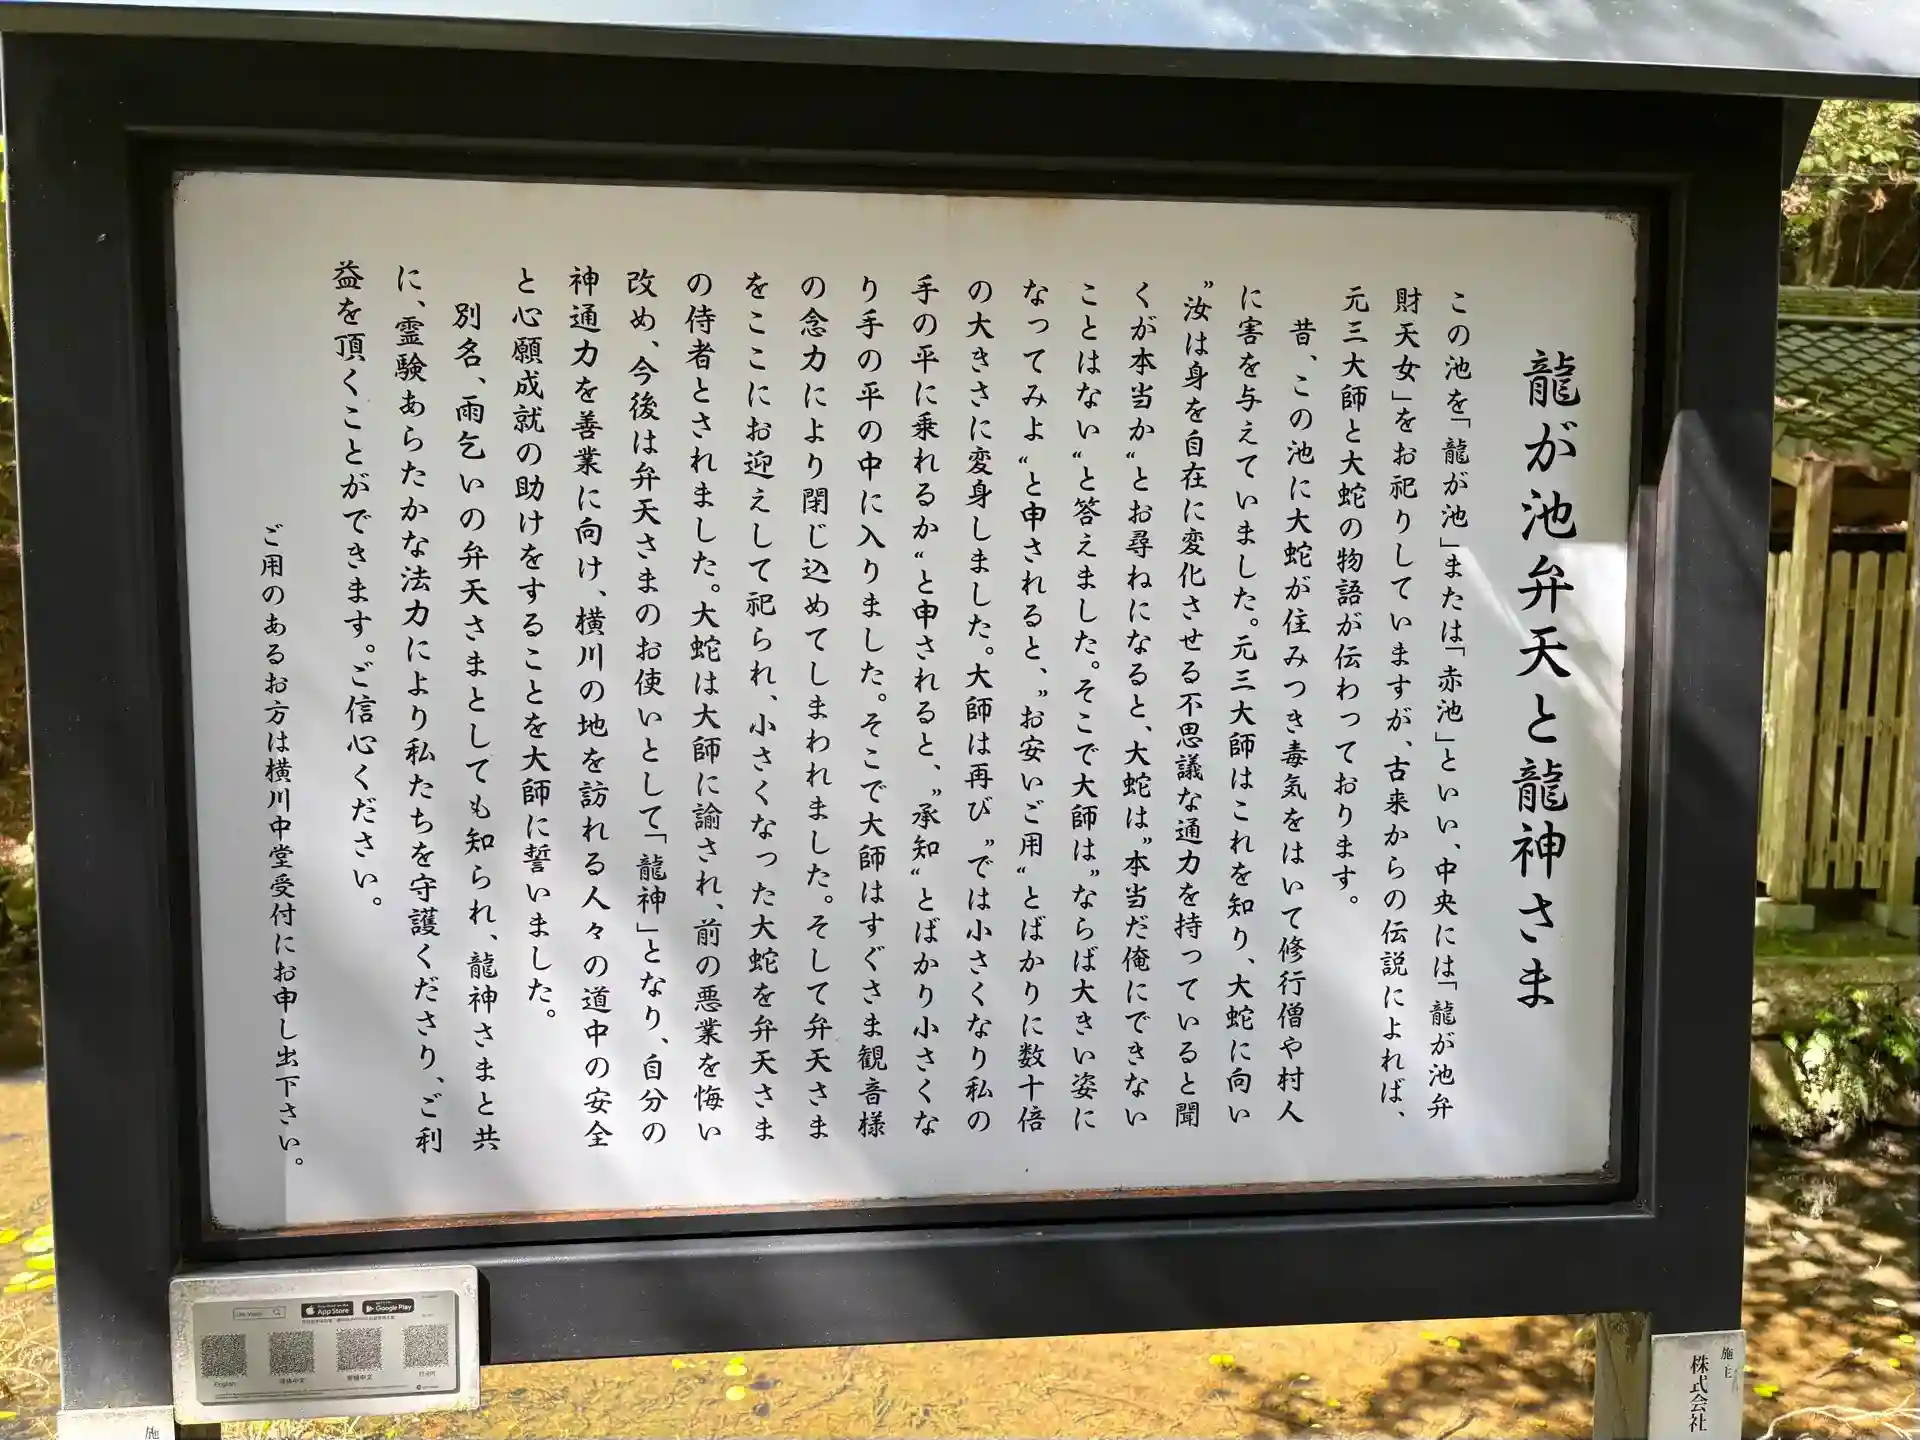 龍が池弁天と龍神さま
この池を「龍が池」または「赤池」といい、中央には「龍が池弁
財天女」をお祀りしていますが、古来からの伝説によれば、
元三大師と大蛇の物語が伝わっております。
昔、この池に大蛇が住みつき毒気をはいて修行僧や村人
に害を与えていました。元三大師はこれを知り、大蛇に向い
〝汝は身を自在に変化させる不思議な通力を持っていると聞
くが本当か〟とお尋ねになると、大蛇は〝本当だ俺にできない
ことはない〟と答えました。そこで大師は〝ならば大きい姿に
なってみよ〟と申されると、〝お安いご用〟とばかりに数十倍
の大きさに変身しました。大師は再び〝では小さくなり私の
手の平に乗れるか〟と申されると、〝承知〟とばかり小さくな
り手の平の中に入りました。そこで大師はすぐさま観音様
の念力により閉じ込めてしまわれました。そして弁天さま
をここにお迎えして祀られ、小さくなった大蛇を弁天さま
の侍者とされました。大蛇は大師に諭され、前の悪業を悔い
改め、今後は弁天さまのお使いとして「龍神」となり、自分の
神通力を善業に向け、横川の地を訪れる人々の道中の安全
と心願成就の助けをすることを大師に誓いました。
別名、雨乞いの弁天さまとしても知られ、龍神さまと共
に、霊験あらたかな法力により私たちを守護くださり、ご利
益を頂くことができます。ご信心ください。
ご用のあるお方は横川中堂受付にお申し出下さい。
App Store
Google Play
English
简体中文
繁體中文
施主
株式会社
施